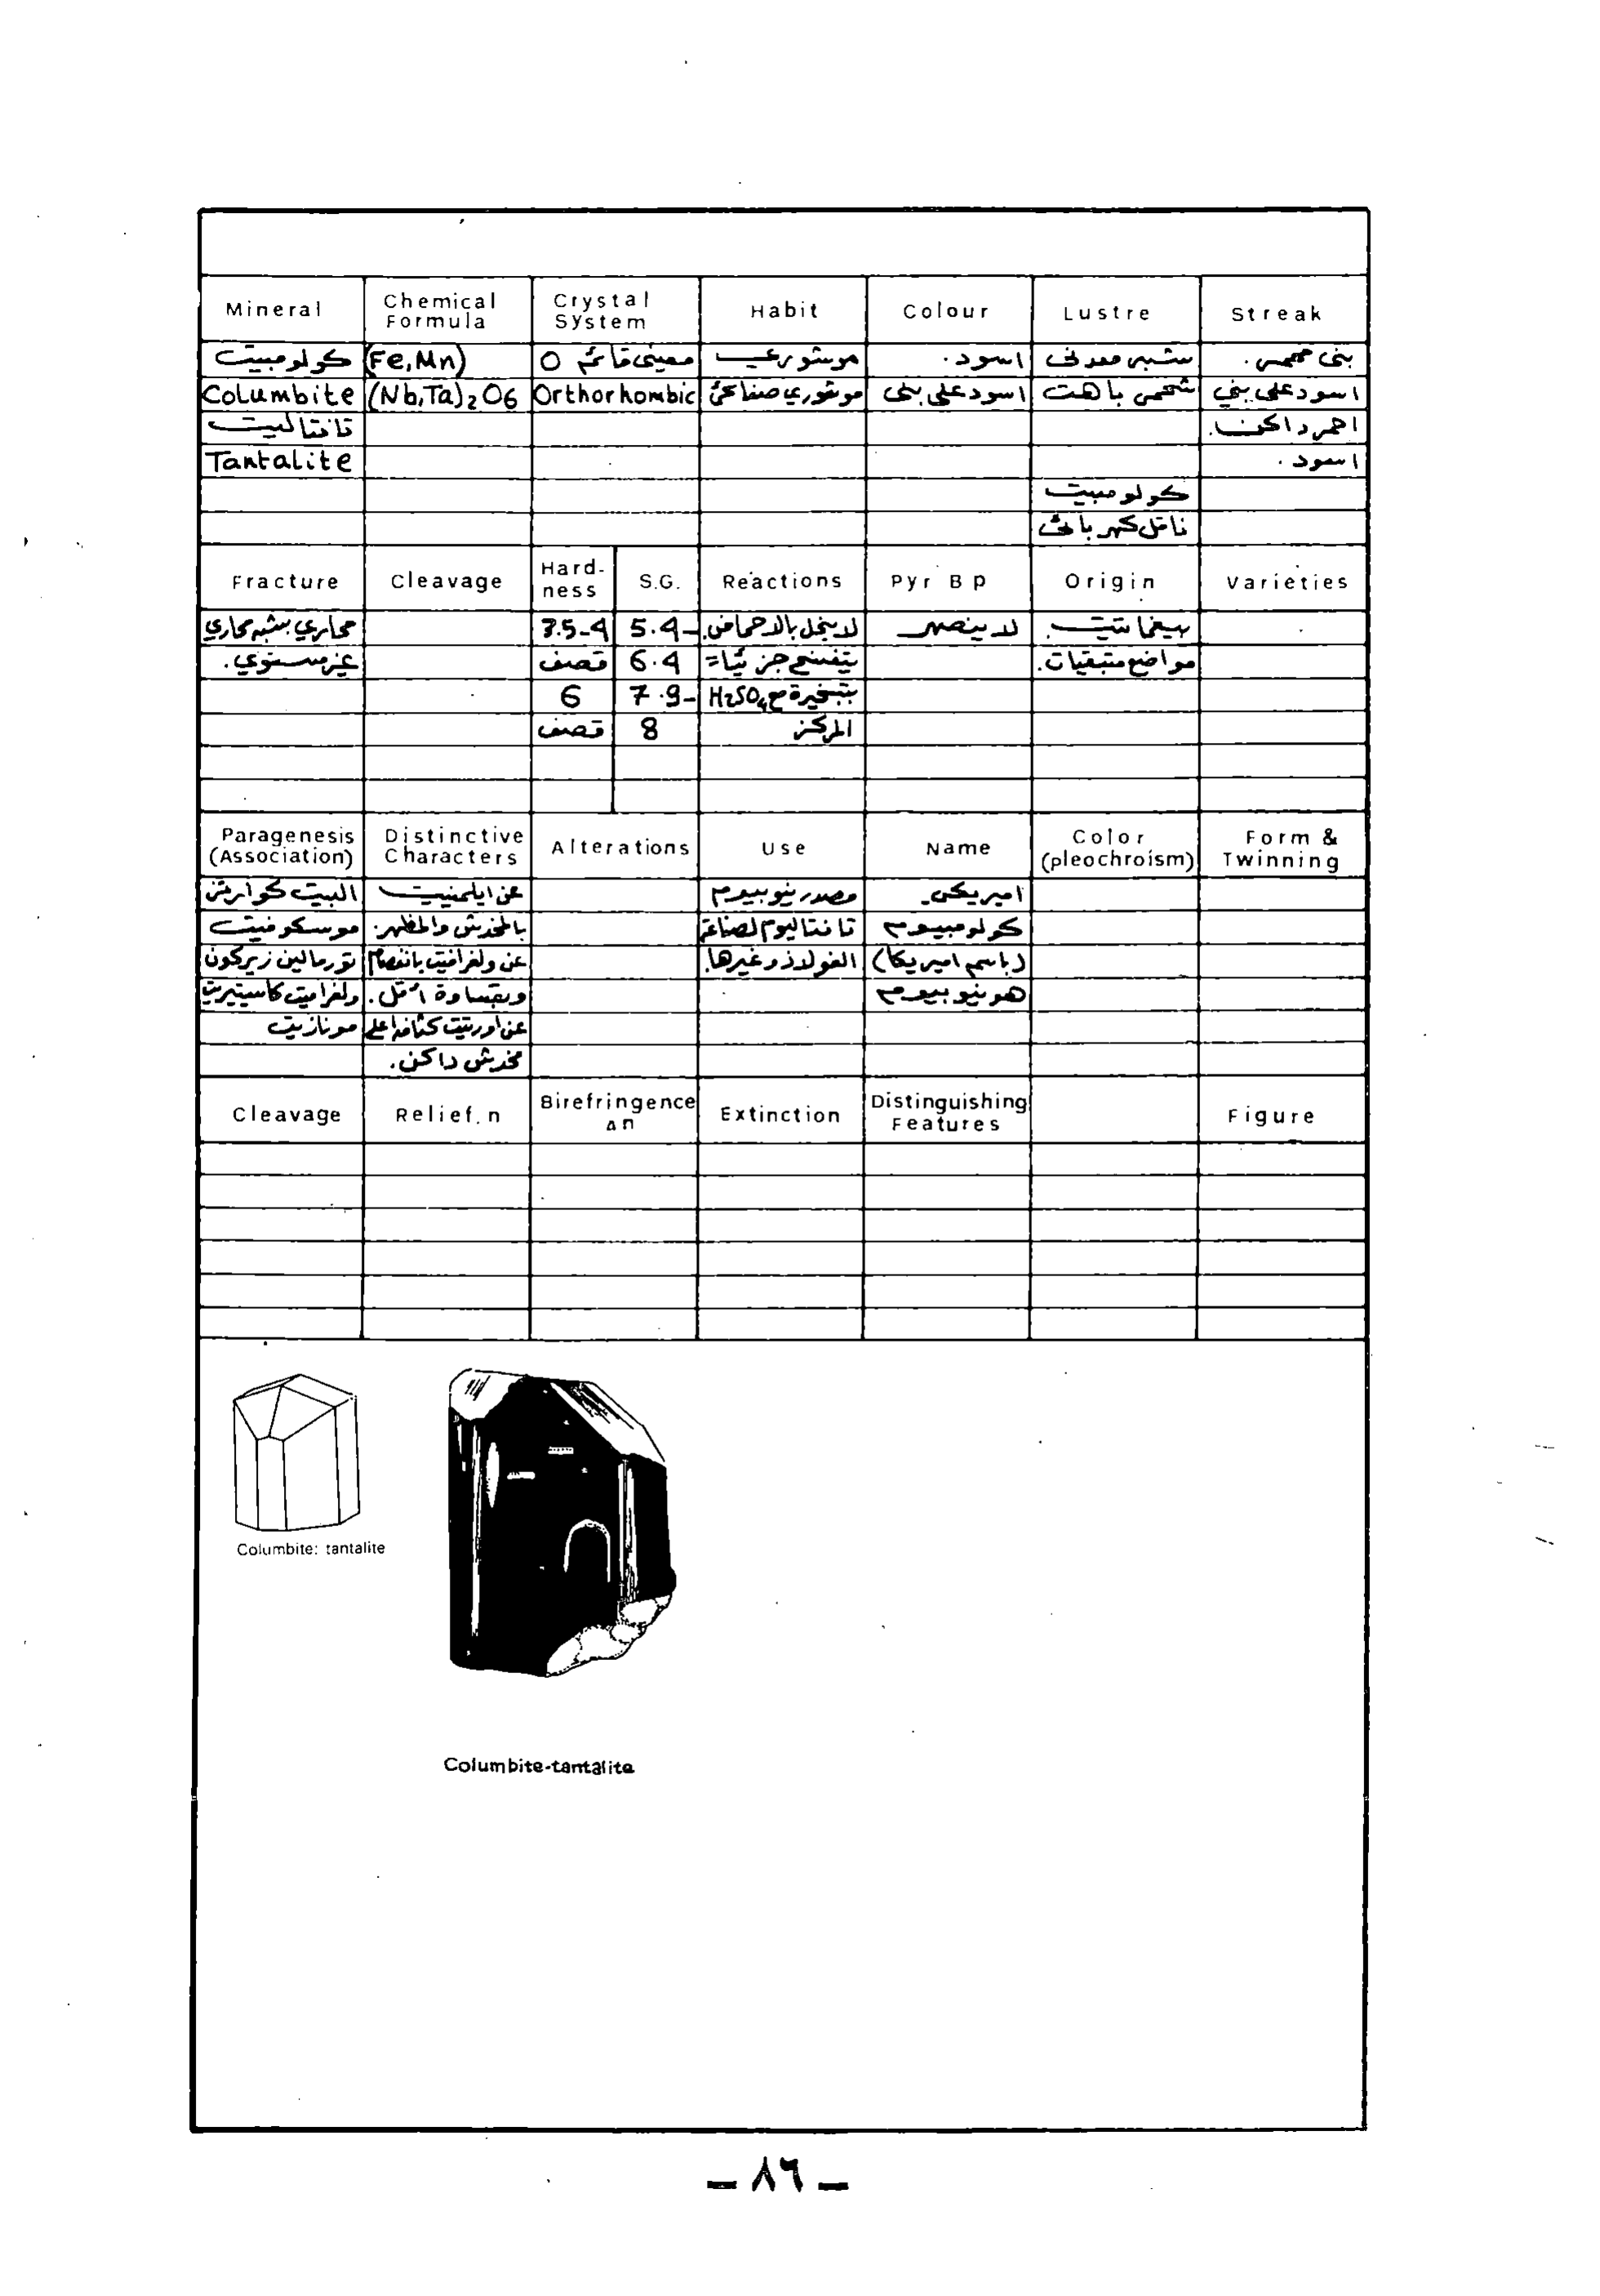 Mineral Chemical Formula Crystal System Habit Colour Lustre Streak
كولومبيت (Fe,Mn) معيني قائم O موشوري اسود. شبه معدني بني محمر.
Columbite (Nb,Ta)2O6 Orthorhombic موشوري صفائحي اسود على بني شحمي باهت اسود على بني
تانتاليت احمر داكن.
Tantalite اسود.
كولومبيت
ناقل كهربائي
Fracture Cleavage Hardness S.G. Reactions Pyr Bp Origin Varieties
محاري، شبه محاري 3.5-4 5.4- لا ينحل بالاحماض. لا ينصهر بيغماتيت.
غير مستوي. قصف 6.4 يتفسخ جزئياً مواضع متبقيات.
6 7.9- بتبخيرة مع H2SO4
قصف 8 المركز
Paragenesis (Association) Distinctive Characters Alterations Use Name Color (pleochroism) Form & Twinning
البيت كوارتز عن ايلمنيت مصدر نيوبيوم اميريكي.
موسكوفيت بالمخدش والمظهر. تانتاليوم لصناعة كولومبيوم
تورمالين زيركون عن ولفراميت بانفصام الفولاذ وغيرها. (باسم اميريكا)
ولفراميت كاسيتيريت وبقساوة اقل. هو نيوبيوم
مونازيت عن اورتيت كثافة اعلى
مخدش داكن.
Cleavage Relief. n Birefringence Δn Extinction Distinguishing Features Figure
Columbite: tantalite
Columbite-tantalite
– ٨٦ –